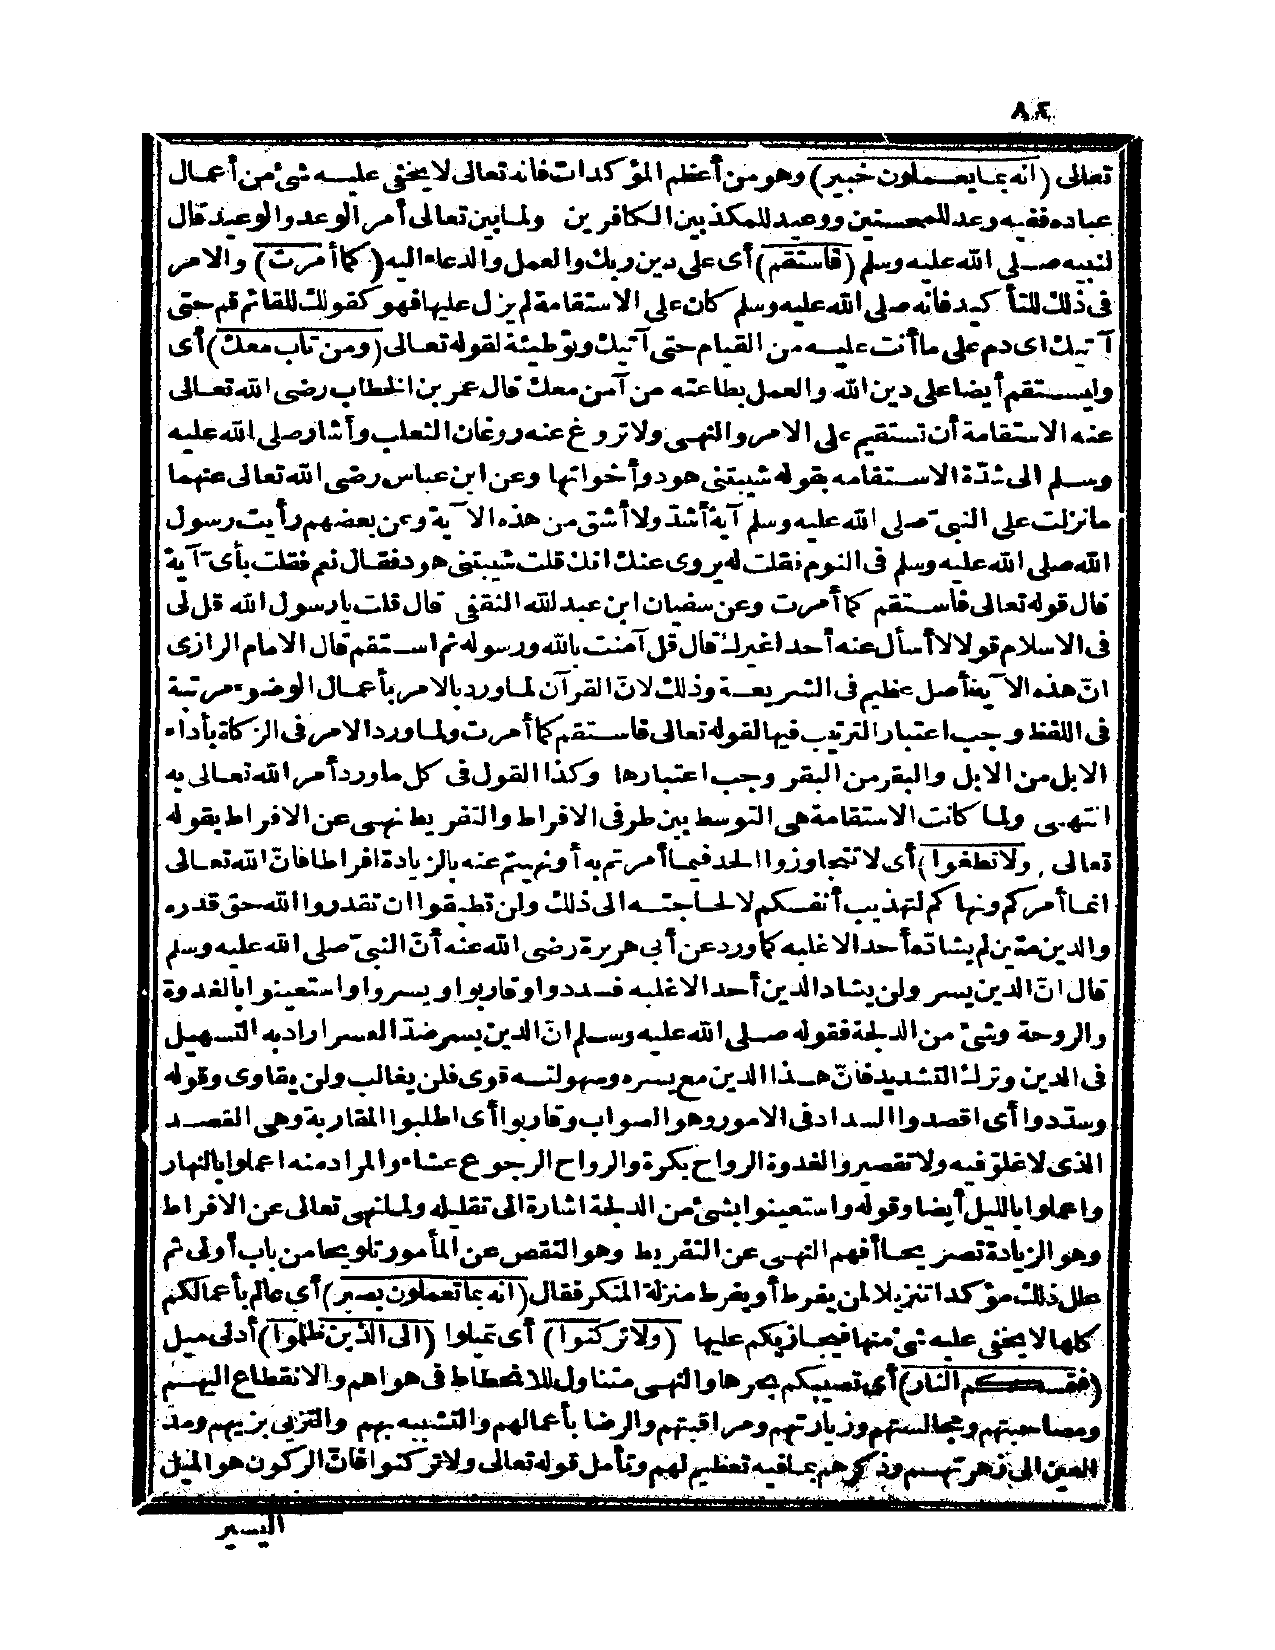 ٨٤
تعالى (انه بما يعملون خبير) وهو من أعظم المؤكدات فانه تعالى لا يخفى عليه شئ من أعمال
عباده ففيه وعد للمحسنين ووعيد للمكذبين الكافرين ولما بين تعالى أمر الوعد والوعيد قال
لنبيه صلى الله عليه وسلم (فاستقم) أى على دين ربك والعمل والدعاء اليه (كما أمرت) والامر
فى ذلك للتأكيد فانه صلى الله عليه وسلم كان على الاستقامة لم يزل عليها فهو كقولك للقائم قم حتى
آتيك اى دم على ما أنت عليه من القيام حتى آتيك وتوطئة لقوله تعالى (ومن تاب معك) أى
وليستقم أيضا على دين الله والعمل بطاعته من آمن معك قال عمر بن الخطاب رضى الله تعالى
عنه الاستقامة أن تستقيم على الامر والنهى ولا تروغ عنه روغان الثعلب وأشار صلى الله عليه
وسلم الى شدّة الاستقامه بقوله شيبتنى هود وأخواتها وعن ابن عباس رضى الله تعالى عنهما
ما نزلت على النبىّ صلى الله عليه وسلم آية أشد ولا أشق من هذه الآية وعن بعضهم رأيت رسول
الله صلى الله عليه وسلم فى النوم فقلت له يروى عنك انك قلت شيبتنى هود فقال نعم فقلت بأىّ آية
قال قوله تعالى فاستقم كما أمرت وعن سفيان ابن عبد الله الثقفى قال قلت يا رسول الله قل لى
فى الاسلام قولا لا أسأل عنه أحدا غيرك قال قل آمنت بالله ورسوله ثم استقم قال الامام الرازى
انّ هذه الآية أصل عظيم فى الشريعة وذلك لانّ القرآن لما ورد بالامر بأعمال الوضوء مرتبة
فى اللفظ وجب اعتبار الترتيب فيها لقوله تعالى فاستقم كما أمرت ولما ورد الامر فى الزكاة بأداء
الابل من الابل والبقر من البقر وجب اعتبارها وكذا القول فى كل ما ورد أمر الله تعالى به
انتهى ولما كانت الاستقامة هى التوسط بين طرفى الافراط والتفريط نهى عن الافراط بقوله
تعالى (ولا تطغوا) أى لا تتجاوزوا الحد فيما أمرتم به أو نهيتم عنه بالزيادة افراطا فانّ الله تعالى
انما أمركم ونهاكم لتهذيب أنفسكم لا لحاجته الى ذلك ولن تطيقوا ان تقدروا الله حق قدره
والدين متين لم يشادّه أحد الا غلبه كما ورد عن أبى هريرة رضى الله عنه أنّ النبىّ صلى الله عليه وسلم
قال انّ الدين يسر ولن يشاد الدين أحد الا غلبه فسددوا وقاربوا ويسروا واستعينوا بالغدوة
والروحة وشئ من الدلجة فقوله صلى الله عليه وسلم انّ الدين يسر ضدّ العسر اراد به التسهيل
فى الدين وترك التشديد فانّ هذا الدين مع يسره وسهولته قوى فلن يغالب ولن يقاوى وقوله
وسدّدوا أى اقصدوا السداد فى الامور وهو الصواب وقاربوا أى اطلبوا المقاربة وهى القصد
الذى لا غلوّ فيه ولا تقصير والغدوة الرواح بكرة والرواح الرجوع عشاء والمراد منه اعملوا بالنهار
واعملوا بالليل أيضا وقوله واستعينوا بشئ من الدلجة اشارة الى تقليله ولما نهى تعالى عن الافراط
وهو الزيادة تصريحا أفهم النهى عن التفريط وهو النقص عن المأمور تلويحا من باب أولى ثم
علل ذلك مؤكدا تنزيلا لمن يفرط أو يفرط منزلة المنكر فقال (انه بما تعملون بصير) أى عالم بأعمالكم
كلها لا يخفى عليه شئ منها فيجازيكم عليها (ولا تركنوا) أى تميلوا (الى الذين ظلموا) أدنى ميل
(فتمسكم النار) أى تصيبكم بحرها والنهى متناول للانحطاط فى هواهم والانقطاع اليهم
ومصاحبتهم ومجالستهم وزيارتهم ومراقبتهم والرضا بأعمالهم والتشبيه بهم والتزيى بزيهم ومدّ
العين الى زهرتهم وذكرهم بما فيه تعظيم لهم وتأمل قوله تعالى ولا تركنوا فانّ الركون هو الميل
اليسير